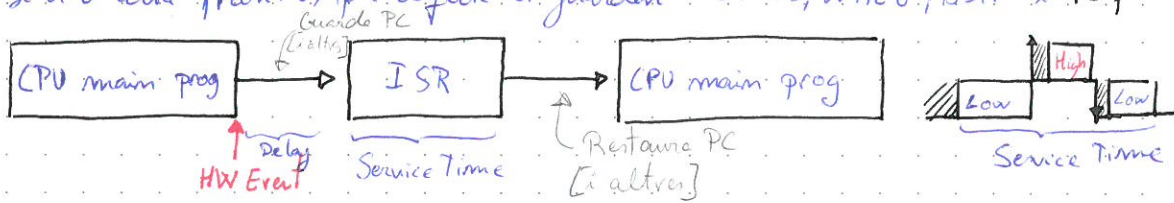 Guarda PC
[i altres]
CPU main prog
ISR
CPU main prog
High
Low
Low
Delay
HW Event
Service Time
Restaura PC
[i altres]
Service Time